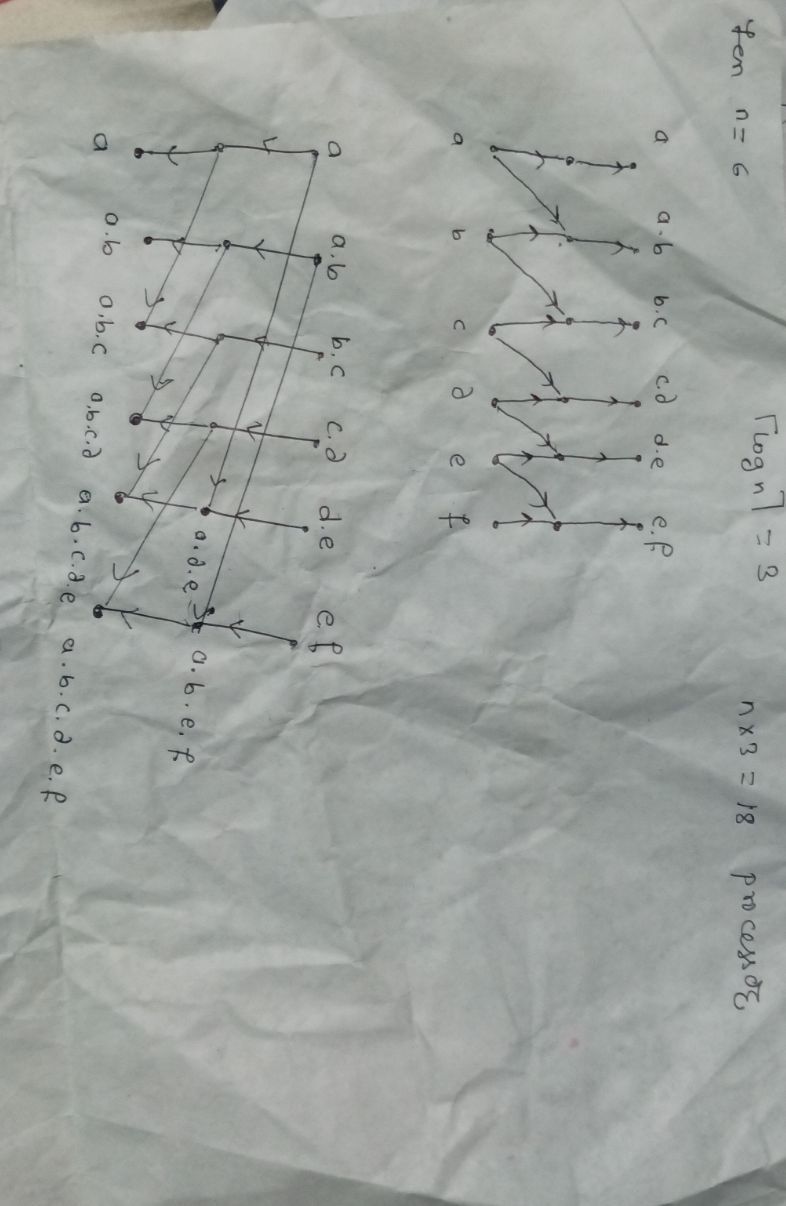 for n = 6 ⌈log n⌉ = 3 n × 3 = 18 processor
a a.b b.c c.d d.e e.f
a b c d e f
a a.b b.c c.d d.e e.f
a.d.e a.b.e.f
a a.b a.b.c a.b.c.d a.b.c.d.e a.b.c.d.e.f